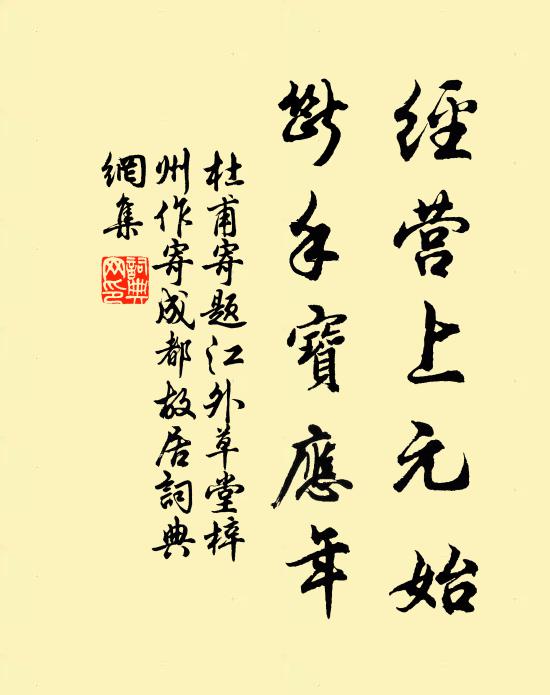 經营上元始
斷手寶應年
杜甫寄题江外草堂梓
州作寄成都故居詞典
網集
詞典
网印